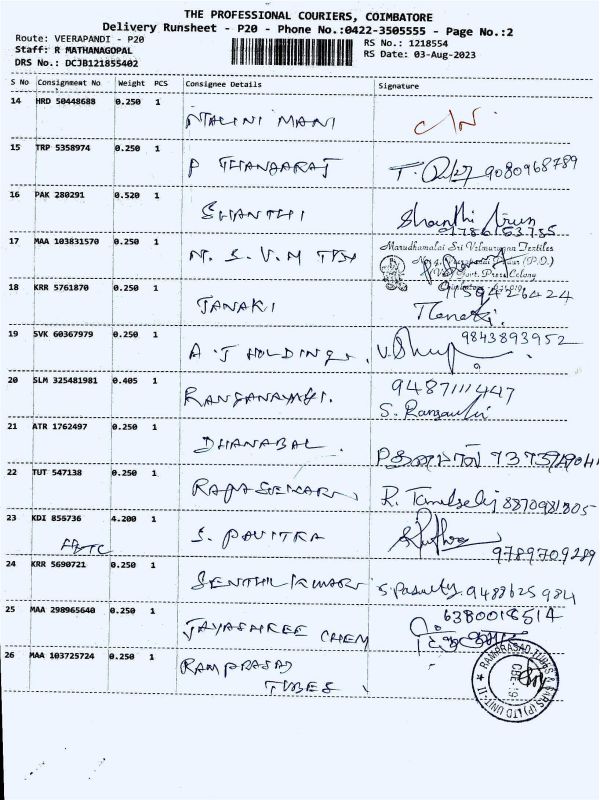 THE PROFESSIONAL COURIERS, COIMBATORE
Delivery Runsheet - P20 - Phone No.:0422-3505555 - Page No.:2
Route: VEERAPANDI - P20
Staff: R MATHANAGOPAL
DRS No.: DCJB121855402
RS No.: 1218554
RS Date: 03-Aug-2023
S No Consignment No Weight PCS Consignee Details Signature
14 HRD 50448688 0.250 1
NALINI MANI
15 TRP 5358974 0.250 1
P THANGARAJ 9080968789
16 PAK 280291 0.520 1
SHANTHI Shanthi Arun
9786153735
17 MAA 103831570 0.250 1 Marudhamalai Sri Velmurugan Textiles
M. S. V. M TEX
Govt. Press Colony
18 KRR 5761870 0.250 1 9159426424
JANAKI
19 SVK 60367979 0.250 1 9843893952
A J HOLDINGS
20 SLM 325481981 0.405 1 9487111447
RANGANAYAGI. S.
21 ATR 1762497 0.250 1
DHANABAL
22 TUT 547138 0.250 1
RAJASEKARN R. Tamilselvi 8870981805
23 KDI 855736 4.200 1
S. PAVITRA
9789709289
24 KRR 5690721 0.250 1
SENTHILKUMAR 9488625984
25 MAA 298965640 0.250 1 6380018514
JAYASHREE CHEM
26 MAA 103725724 0.250 1
RAMPRASAD
TUBES
RAMPRASAD TUBES & BARS (P) LTD UNIT-II
CBE-19